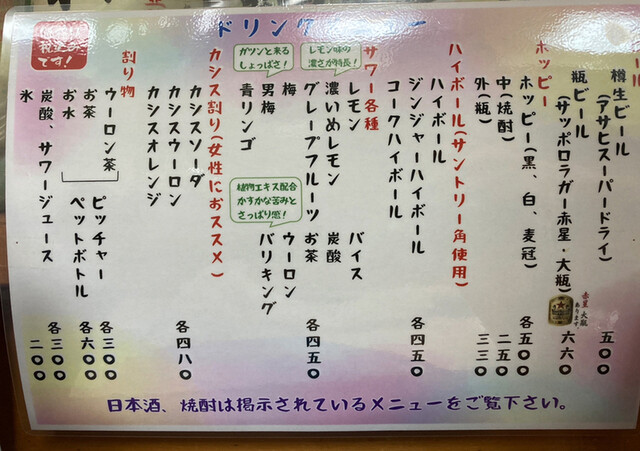 ドリンクメニュー
税込み
です!
ビール
樽生ビール
(アサヒスーパードライ) 五〇〇
瓶ビール
(サッポロラガー赤星・大瓶) 六六〇
赤星 大瓶
あります
ホッピー
ホッピー(黒、白、麦冠) 各五〇〇
中(焼酎) 二五〇
外(瓶) 三三〇
ハイボール(サントリー角使用)
ハイボール
ジンジャーハイボール
コークハイボール
各四五〇
サワー各種
レモン味の
濃さが特長!
レモン
濃いめレモン
グレープフルーツ
ガツンと来る
しょっぱさ!
梅
男梅
青リンゴ
バイス
炭酸
お茶
ウーロン
バリキング
植物エキス配合
かすかな苦みと
さっぱり感!
各四五〇
カシス割り(女性におススメ)
カシスソーダ
カシスウーロン
カシスオレンジ
各四八〇
割り物
ウーロン茶
お茶
お水
ピッチャー 各三〇〇
ペットボトル 各六〇〇
炭酸、サワージュース 各三〇〇
氷 二〇〇
日本酒、焼酎は掲示されているメニューをご覧下さい。